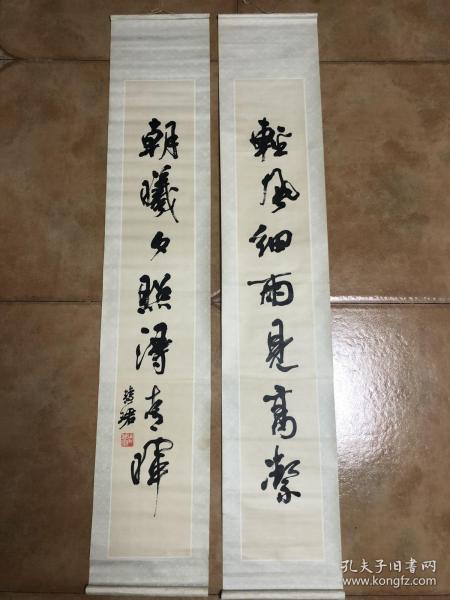 輕風細雨見高潔
朝曦夕照得青暉
孔夫子旧书网
www.kongfz.com